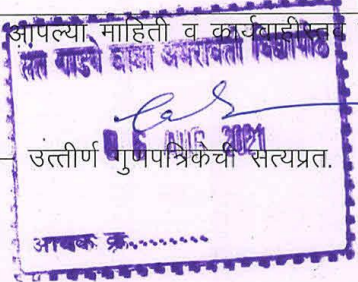 आपल्या माहिती व कार्यवाहीस्तव
संत गाडगे बाबा अमरावती विद्यापीठ
AUG 2021
उत्तीर्ण गुणपत्रिकेची सत्यप्रत.
आवक क्र..........